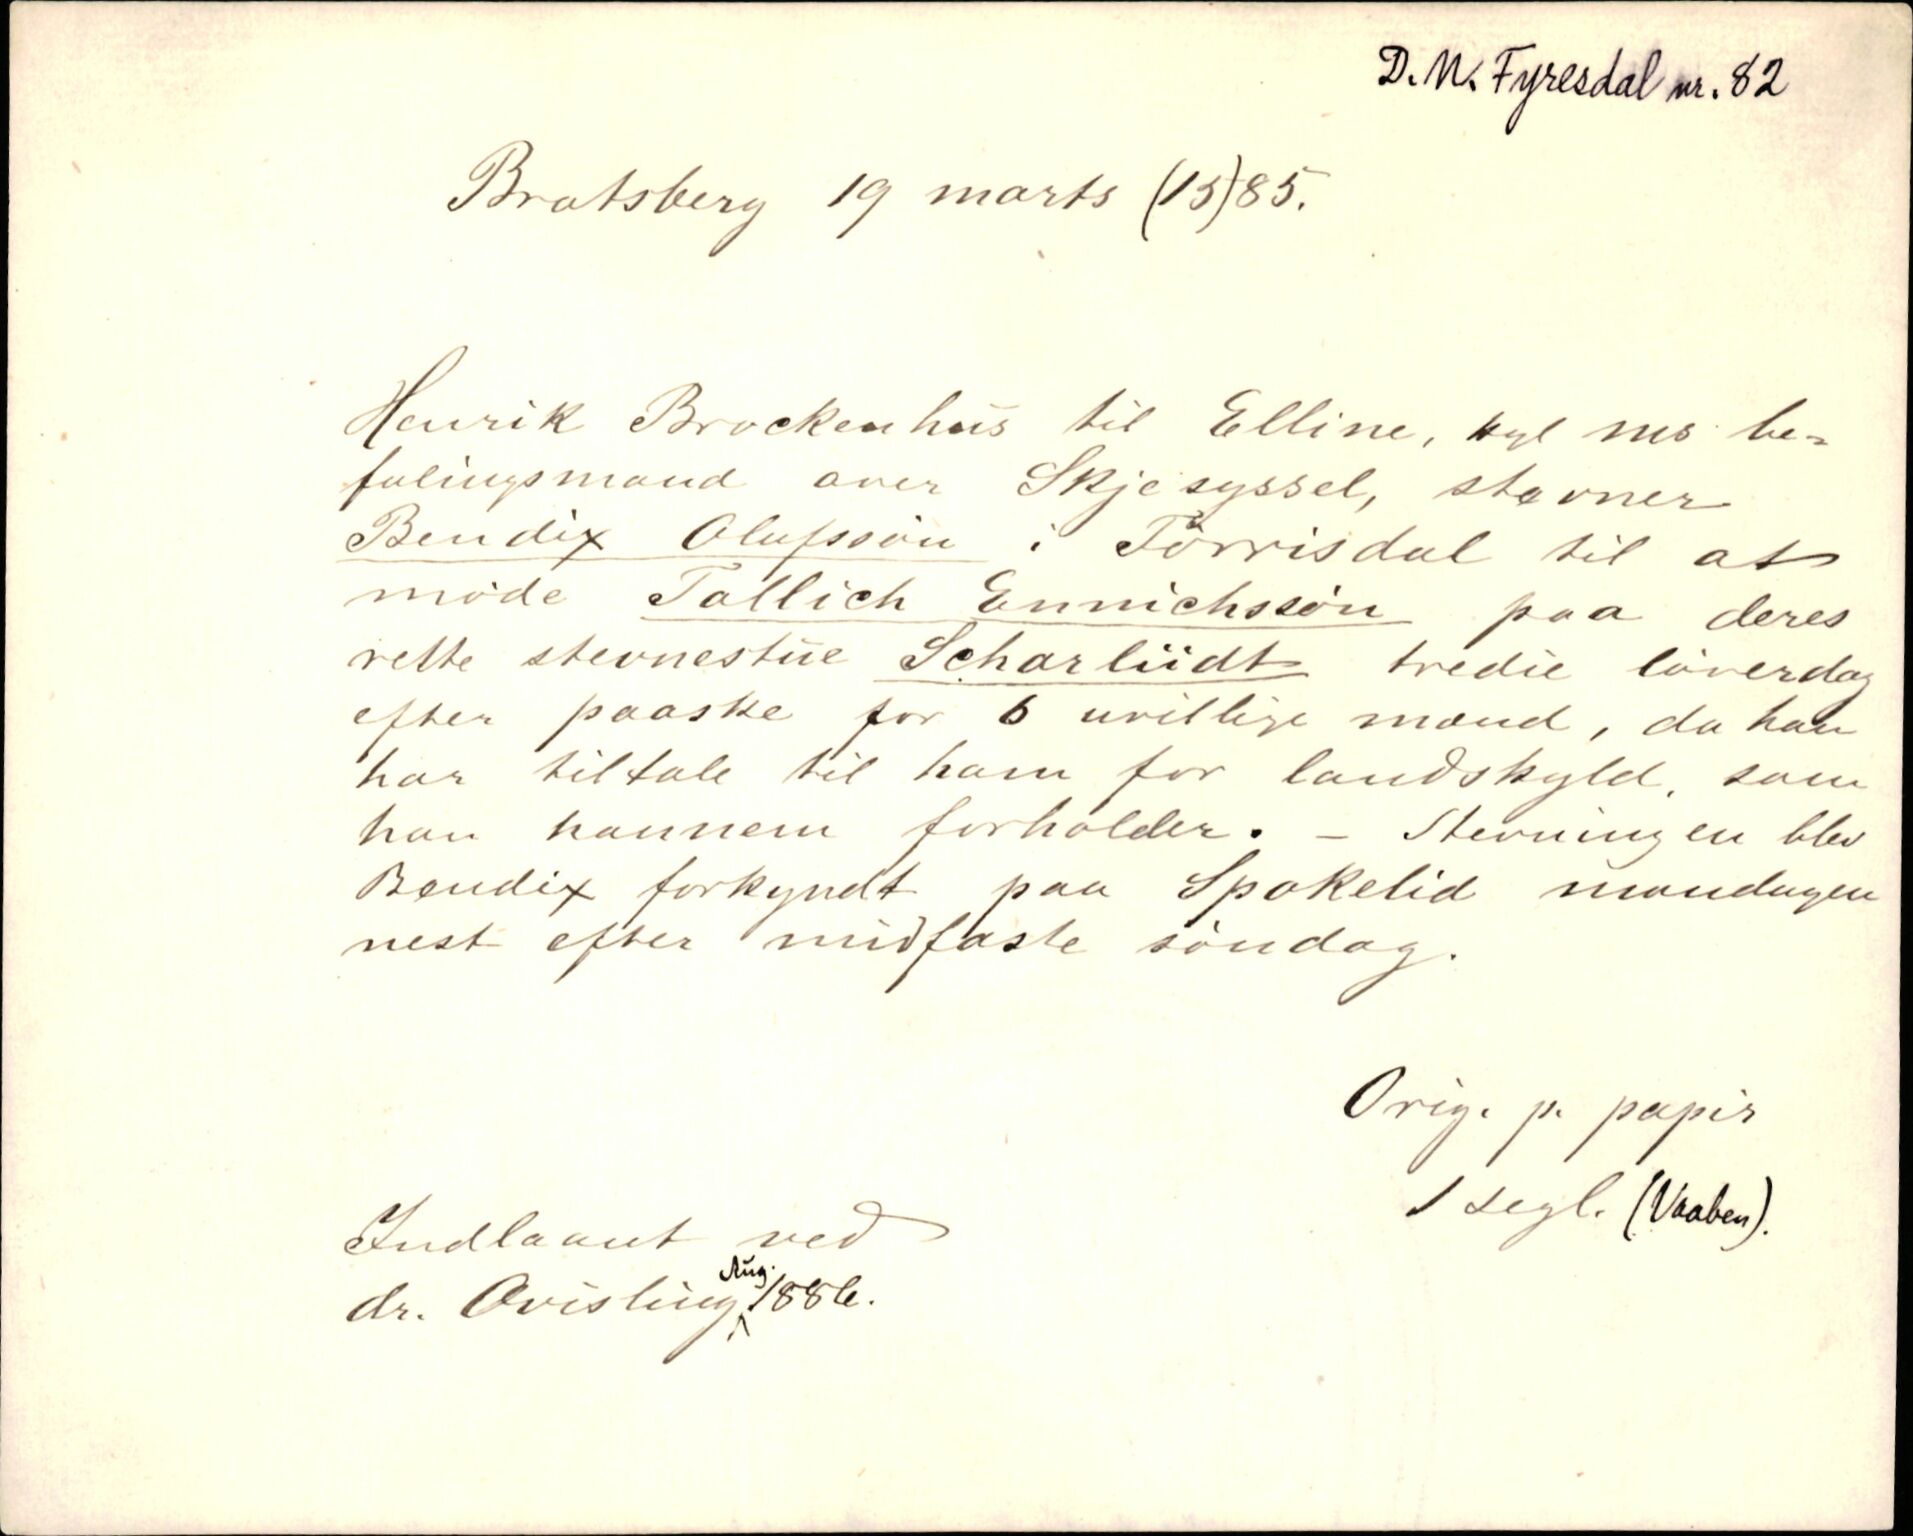 D. N. Fyresdal nr. 82
Bratsberg 19 marts (15)85.
Henrik Brockenhus til Elline, kgl ms be-
falingsmand over Skjesyssel, stevner
Bendix Olufssøn i Törrisdal til at
møde Tallich Ennichssøn paa deres
rette stevnestue Scharlüdt tredie løverdag
efter paaske for 6 uvillige mænd, da han
har tiltale til ham for landskyld, som
han hannem forholder. - Stevningen blev
Bendix forkyndt paa Spokelid mandagen
nest efter midfaste søndag.
Orig. p. papir
1 segl. (Vaaben).
Indlaant ved
dr. Qvisling Aug. 1886.